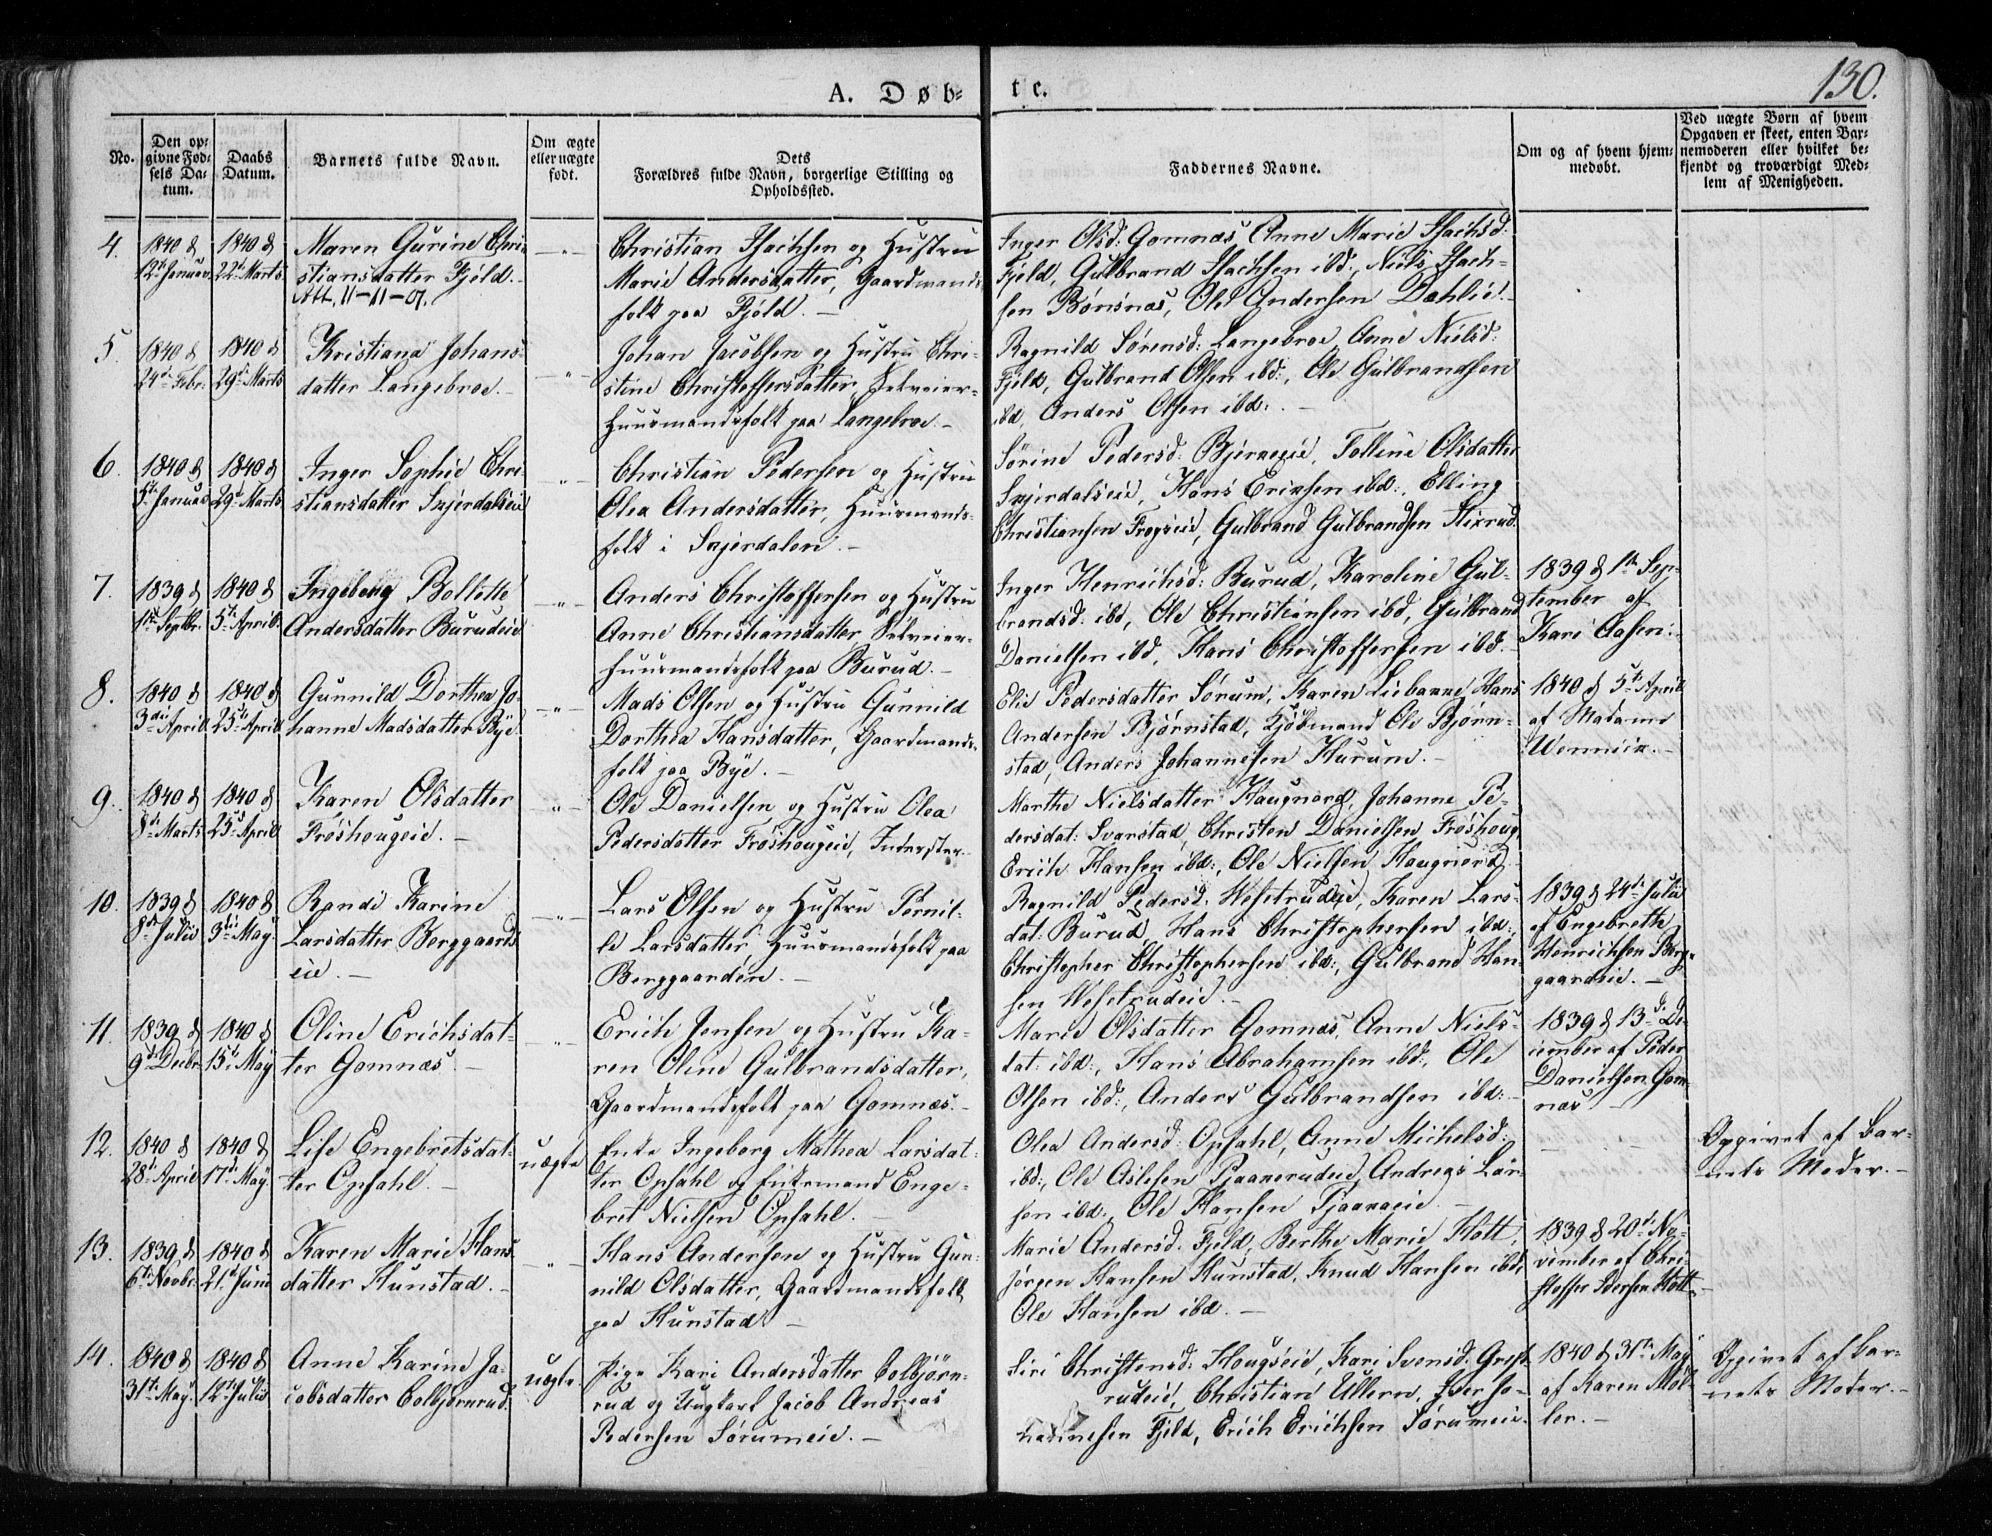 A. Døb- te.
130.
No.
Den op-
givne Fød-
sels Da-
tum.
Daabs
Datum.
Barnets fulde Navn.
Om ægte
eller uægte
født.
Dets
Forældres fulde Navn, borgerlige Stilling og
Opholdssted.
Faddernes Navne.
Om og af hvem hjem-
medøbt.
Ved uægte Børn af hvem
Opgaven er skeet, enten Bar-
nemoderen eller hvilket be-
kjendt og troværdigt Med-
lem af Menigheden.
4.
1840 d
12te Januar
1840 d
22de Marts
Maren Gurine Chri-
stiansdatter Fjeld.
Att. 11-11-07.
"
Christian Isachsen og Hustru
Marie Andersdatter, Gaardmands-
folk paa Fjeld.
Inger Olsd: Gomnæs, Anne Marie Isachsd:
Fjeld, Gulbrand Isachsen ibd:, Niels Isach-
sen Bønsnæs, Ole Andersen Dahlie.
5.
1840 d
24de Febr.
1840 d
29de Marts
Kristiana Johans-
datter Langebroe.
"
Johan Jacobsen og Hustru Chri-
stine Christoffersdatter, Selveier-
Huusmandsfolk paa Langebroe.
Ragnild Sørensd: Langebroe, Anne Nielsd:
Fjeld, Gulbrand Olsen ibd:, Ole Gulbrandsen
ibd, Anders Olsen ibd:
6.
1840 d
5te Januar
1840 d
29de Marts
Inger Sophie Chri-
stiansdatter Skjerdalseie
"
Christian Pedersen og Hustru
Olea Andersdatter, Huusmands-
folk i Skjerdalen.
Sørine Pedersd: Bjerkeeie, Tolline Olsdatter
Skjerdalseie, Hans Eriksen ibd:, Elling
Christiansen Frogseie, Gulbrand Gulbrandsen Stixrud.
7.
1839 d
1ste Septbr.
1840 d
5te April.
Ingeborg Bollette
Andersdatter Burudeie
"
Anders Christoffersen og Hustru
Anne Christiansdatter, Selveier-
huusmandsfolk paa Burud.
Inger Henrichsd: Burud, Karoline Gul-
brandsd: ibd, Ole Christiansen ibd, Gulbrand
Danielsen ibd, Hans Christoffersen ibd.
1839 d 1ste Sep-
tember af
Kari Aasen.
8.
1840 d
3die April
1840 d
25de April
Gunnild Dorthea Jo-
hanne Madsdatter Bye
"
Mads Olsen og Hustru Gunnild
Dorthea Hansdatter, Gaardmands-
folk paa Bye.
Elie Pedersdatter Sørum, Karen Liebanne, Hans
Andersen Bjørnstad, Kjøbmand Ole Bjørn-
stad, Anders Johannesen Hurum.
1840 d 5te April
af Madame
Wennick.
9.
1840 d
8de Marts
1840 d
25de April
Karen Olsdatter
Frøshougeie.
"
Ole Danielsen og Hustru Olea
Pedersdatter Frøshougeie, Inderster.
Marthe Nielsdatter Haugnord, Johanne Pe-
dersdat: Svarstad, Christen Danielsen Frøshoug,
Erich Hansen ibd:, Ole Nielsen Haugnord.
10.
1839 d
8de Julii
1840 d
3die May
Randi Karine
Larsdatter Berggaards
eie.
"
Lars Olsen og Hustru Pernil-
le Larsdatter, Huusmandsfolk paa
Berggaarden.
Ragnild Pedersd. Wesetrudeie, Karen Lars-
dat: Burud, Hans Christophersen ibd:,
Christopher Christophersen ibd:, Gulbrand Han-
sen Wesetrudeie.
1839 d 24de Julii
af Engebreth
Henrichsen Berg-
gaardeie.
11.
1839 d
9de Decbr.
1840 d
15de May
Oline Erichsdat-
ter Gomnæs.
"
Erich Jensen og Hustru Ka-
ren Oline Gulbrandsdatter,
Gaardmandsfolk paa Gomnæs.
Marie Olsdatter Gomnæs, Anne Niels-
dat: ibd:, Hans Abrahamsen ibd:, Ole
Olsen ibd:, Anders Gulbrandsen ibd:
1839 d 13de De-
cember af Peder
Danielsen Gom-
næs
12.
1840 d
28de April
1840 d
17de May.
Lise Engebretsdat-
ter Opsahl.
uægte
Enke Ingeborg Mathea Larsdat-
ter Opsahl og Enkemand Enge-
bret Nielsen Opsahl.
Olea Andersd: Opsahl, Anne Michelsd:
ibd:, Ole Aslesen Pjaakerudeie, Andreas Lar-
sen ibd:, Ole Hansen Pjaakaeie.
Opgivet af Bar-
nets Moder.
13.
1839 d
6te Novbr.
1840 d
21de Junii
Karen Marie Hans-
datter Hunstad.
"
Hans Andersen og Hustru Gun-
nild Olsdatter, Gaardmandsfolk
paa Hunstad
Marie Andersd. Fjeld, Berthe Marie Hott,
Jørgen Hansen Hunstad, Knud Hansen ibd:
Ole Hansen ibd.
1839 d 20de No-
vember af Chri-
stoffer Pedersen Hott.
14.
1840 d
31te May.
1840 d
12te Julii
Anne Karine Ja-
cobsdatter Colbjørnrud.
uægte
Pige Kari Andersdatter Colbjørn-
rud og Ungkarl Jacob Andreas
Pedersen Sørumeie.
Siri Christensd: Hougseie, Kari Svensd: Græs-
rudeie, Christian Ullern, Iver Jo-
hannesen Fjeld, Erich Erichsen Sørumeie.
1840 d 31te May
af Karen Møl-
ler.
Opgivet af Bar-
nets Moder.